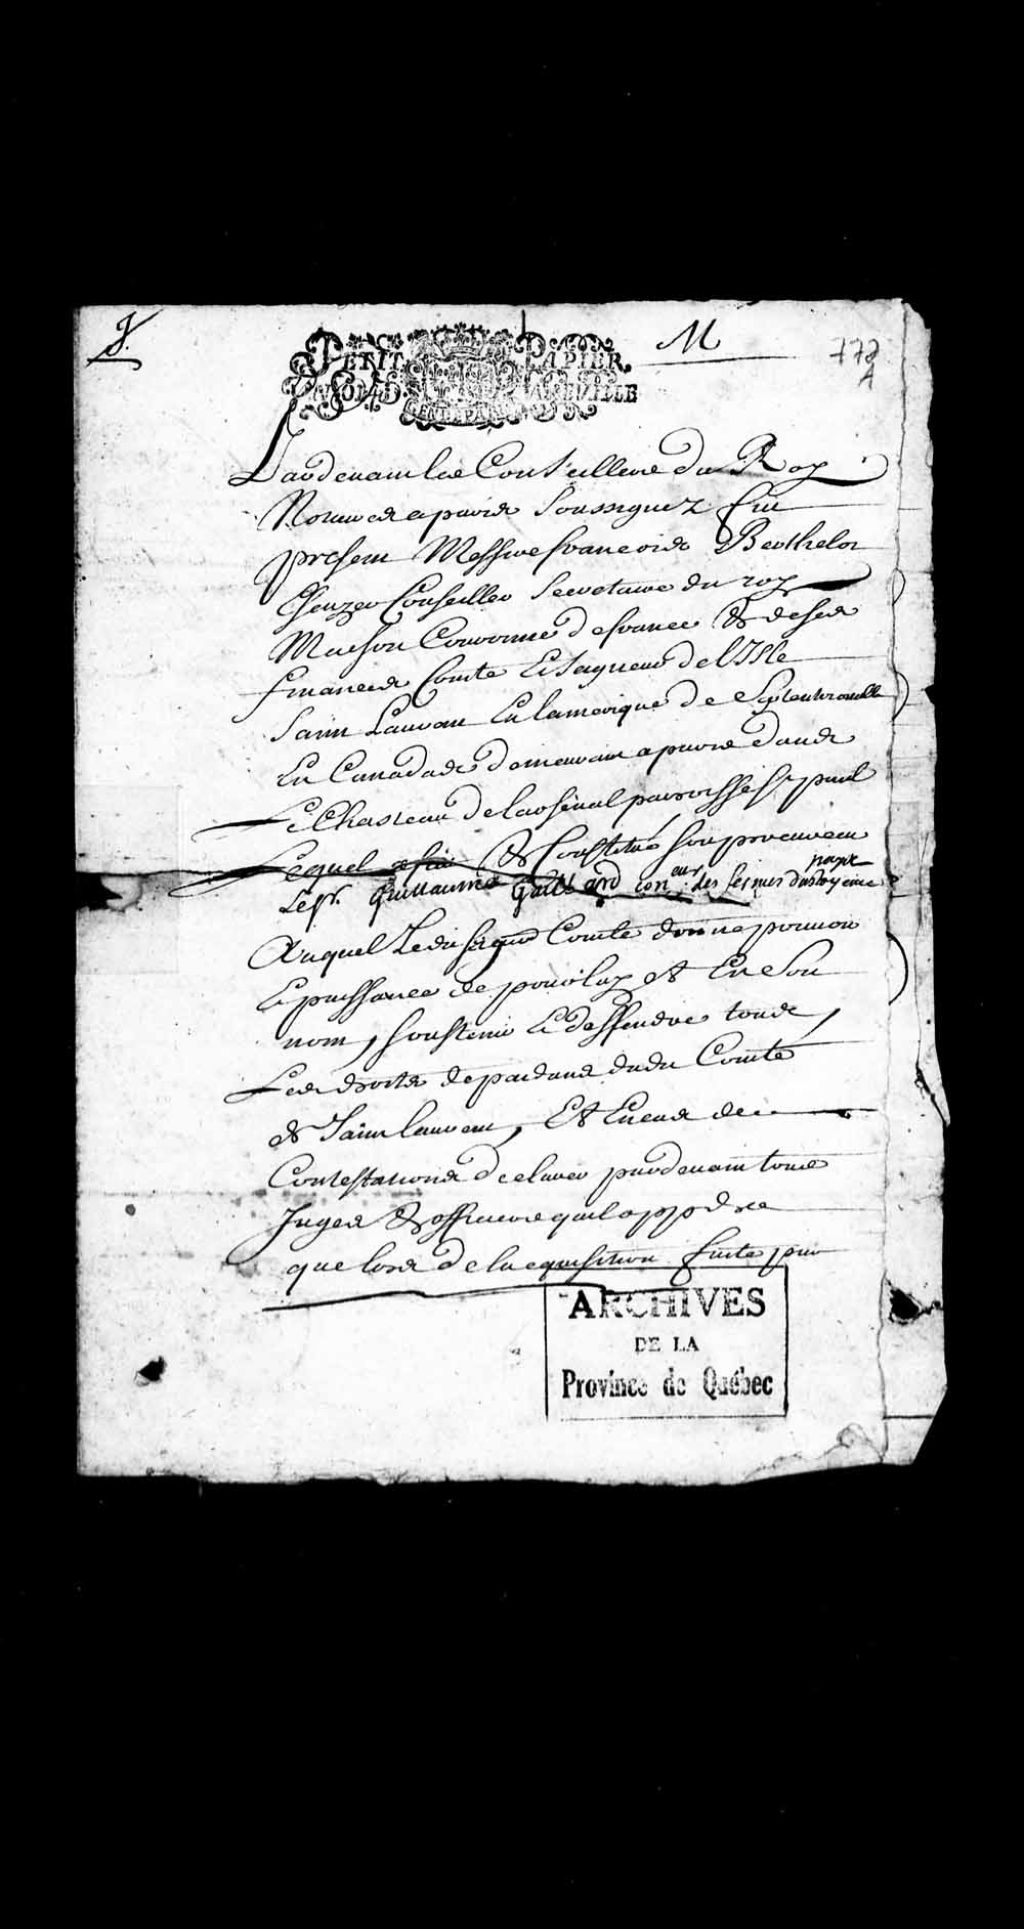 J.
M
772
A
PETIT PAPIER
UN SOL 4 D. LA FEUILLE
GEN. DE PARIS
Pardevant les Conseillers du Roy
Notaires a paris soussignez fut
present Messire francois Berthelot
Escuyer Conseiller Secretaire du roy
Maison Couronne de france & de ses
finances Comte Et Seigneur de l'Isle
Saint Laurent En lamerique Septentrionalle
En Canadas demeurant a paris dans
Le Chasteau de larsenal paroisse St paul
Lequel a fait & Constitué son procureur
Le Sr. Guillaume Gaillard
Auquel Ledit seigneur Comte donne pouvoir
Et puissance de pour luy et En son
nom, soustenir Et deffendre tous,
Les droits dependans dudit Comté
de Saint Laurent, Et En cas de
Contestations declarer pardevant tous
Juges & officiers quil appdra
que lors de lacquisition faite par
ARCHIVES
DE LA
Province de Québec